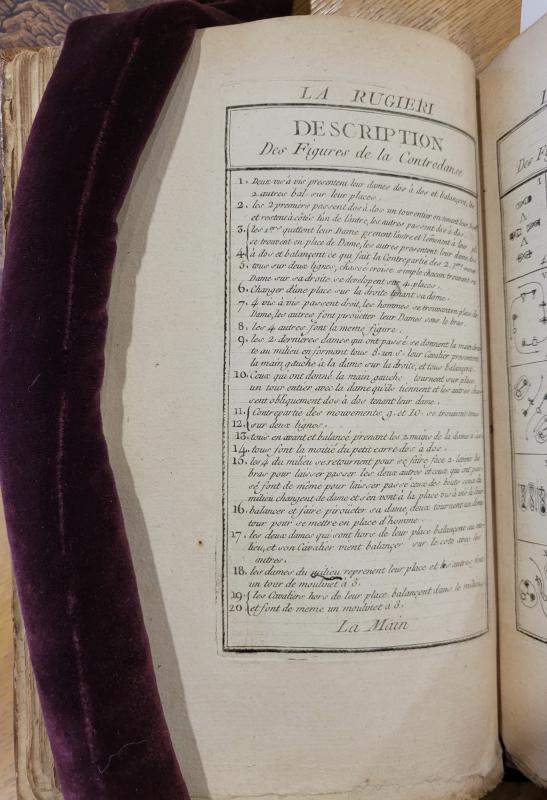 LA RUGIERI
DESCRIPTION
Des Figures de la Contredanse
1. Deux vis à vis presentent leur dames dos à dos et balançent, les
2 autres bal. sur leur places.
2. les 2 premiers passent dos à dos un tour entier en tenant leur
et restent à côtés l'un de l'autre, les autres passent dos à dos.
3. les 1ers quittent leur Dame prenent l'autre et l'emènent à leur
se trouvent en place de Dame, les autres presentent leur dame
4. à dos et balançent ce qui fait la Contrepartie des 2. 1ers
5. tous sur deux lignes, chasse croisé simple chacun trouvant sa
Dame sur sa droite se developent sur 4. places.
6. Changer d'une place sur la droite tenant sa dame.
7. 4 vis à vis passent droit, les hommes se trouvant en place de
Dame, les autres font pirouëtter leur Dames sous le bras
8. les 4 autres font la meme figure.
9. les 2 dernieres dames qui ont passé se donnent la main droi
te au milieu en formant tous 8. un S. leur Cavalier presentent
la main gauche à la dame sur la droite, et tous balançent.
10. Ceux qui ont donné la main gauche tournent sur place
un tour entier avec la dame qu'ils tiennent et les autres chas
sent obliquement dos à dos tenant leur dame.
11. Contrepartie des mouvements 9. et 10. se trouvant tous
12. sur deux lignes.
13. tous en avant et balancé, prenant les 2 mains de la dame
14. tous font la moitié du petit carré dos à dos.
15. les 4 du milieu se retournent pour se faire face 2. levent les
bras pour laisser passer les deux autres et ceux qui ont passé
se font de même pour laisser passe ceux des bouts ceux du
milieu changent de dame et s'en vont à la place vis à vis la leur
16. balancer et faire piroueter sa dame, deux tournent un demi
tour pour se mettre en place d'homme.
17. les deux dames qui sont hors de leur place balançent au mi
lieu, et son Cavalier vient balançer sur le coté avec les
autres.
18. les dames du milieu reprenent leur place et les autres font
un tour de moulinet à 3.
19. les Cavaliers hors de leur place balançent dans le milieu,
20. et font de meme un moulinet à 3.
La Main